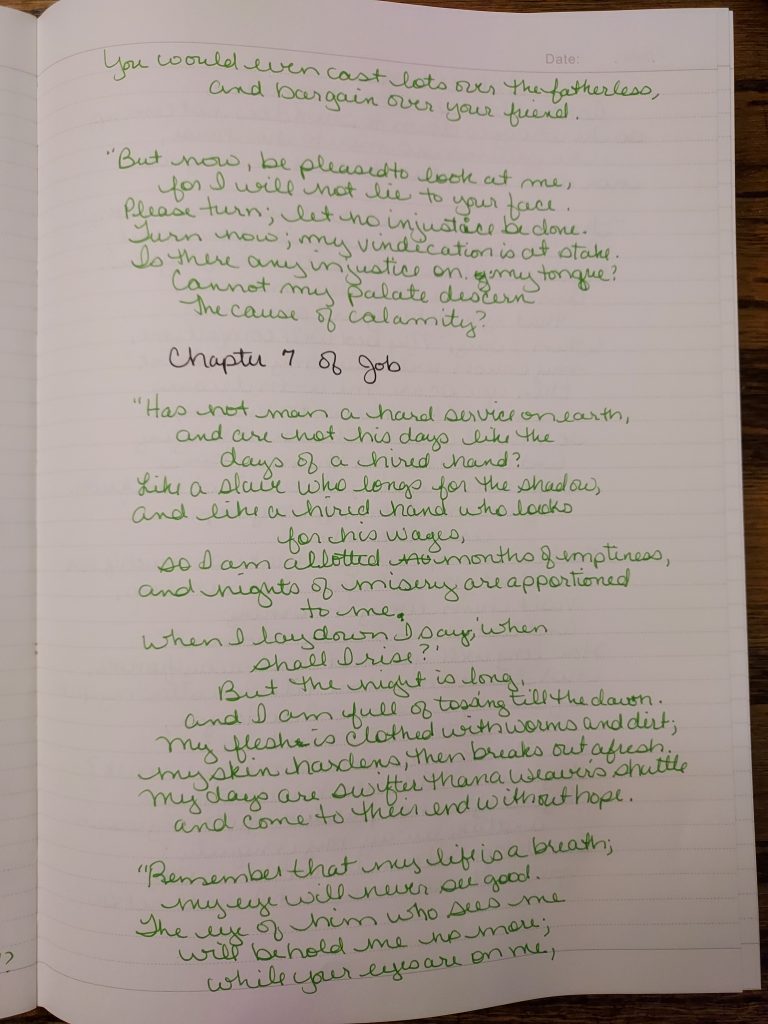 Date:
You would even cast lots over the fatherless,
and bargain over your friend.
"But now, be pleased to look at me,
for I will not lie to your face.
Please turn; let no injustice be done.
Turn now; my vindication is at stake.
Is there any injustice on my tongue?
Cannot my palate descern
The cause of calamity?
Chapter 7 of Job
"Has not man a hard service on earth,
and are not his days like the
days of a hired hand?
Like a slave who longs for the shadow,
and like a hired hand who looks
for his wages,
so I am allotted months of emptiness,
and nights of misery are apportioned
to me.
When I lay down I say, 'when
shall I rise?'
But the night is long,
and I am full of tossing till the dawn.
My flesh is clothed with worms and dirt;
my skin hardens, then breaks out afresh.
My days are swifter than a weaver's shuttle
and come to their end without hope.
"Remember that my life is a breath;
my eye will never see good.
The eye of him who sees me
will behold me no more;
while your eyes are on me,
?